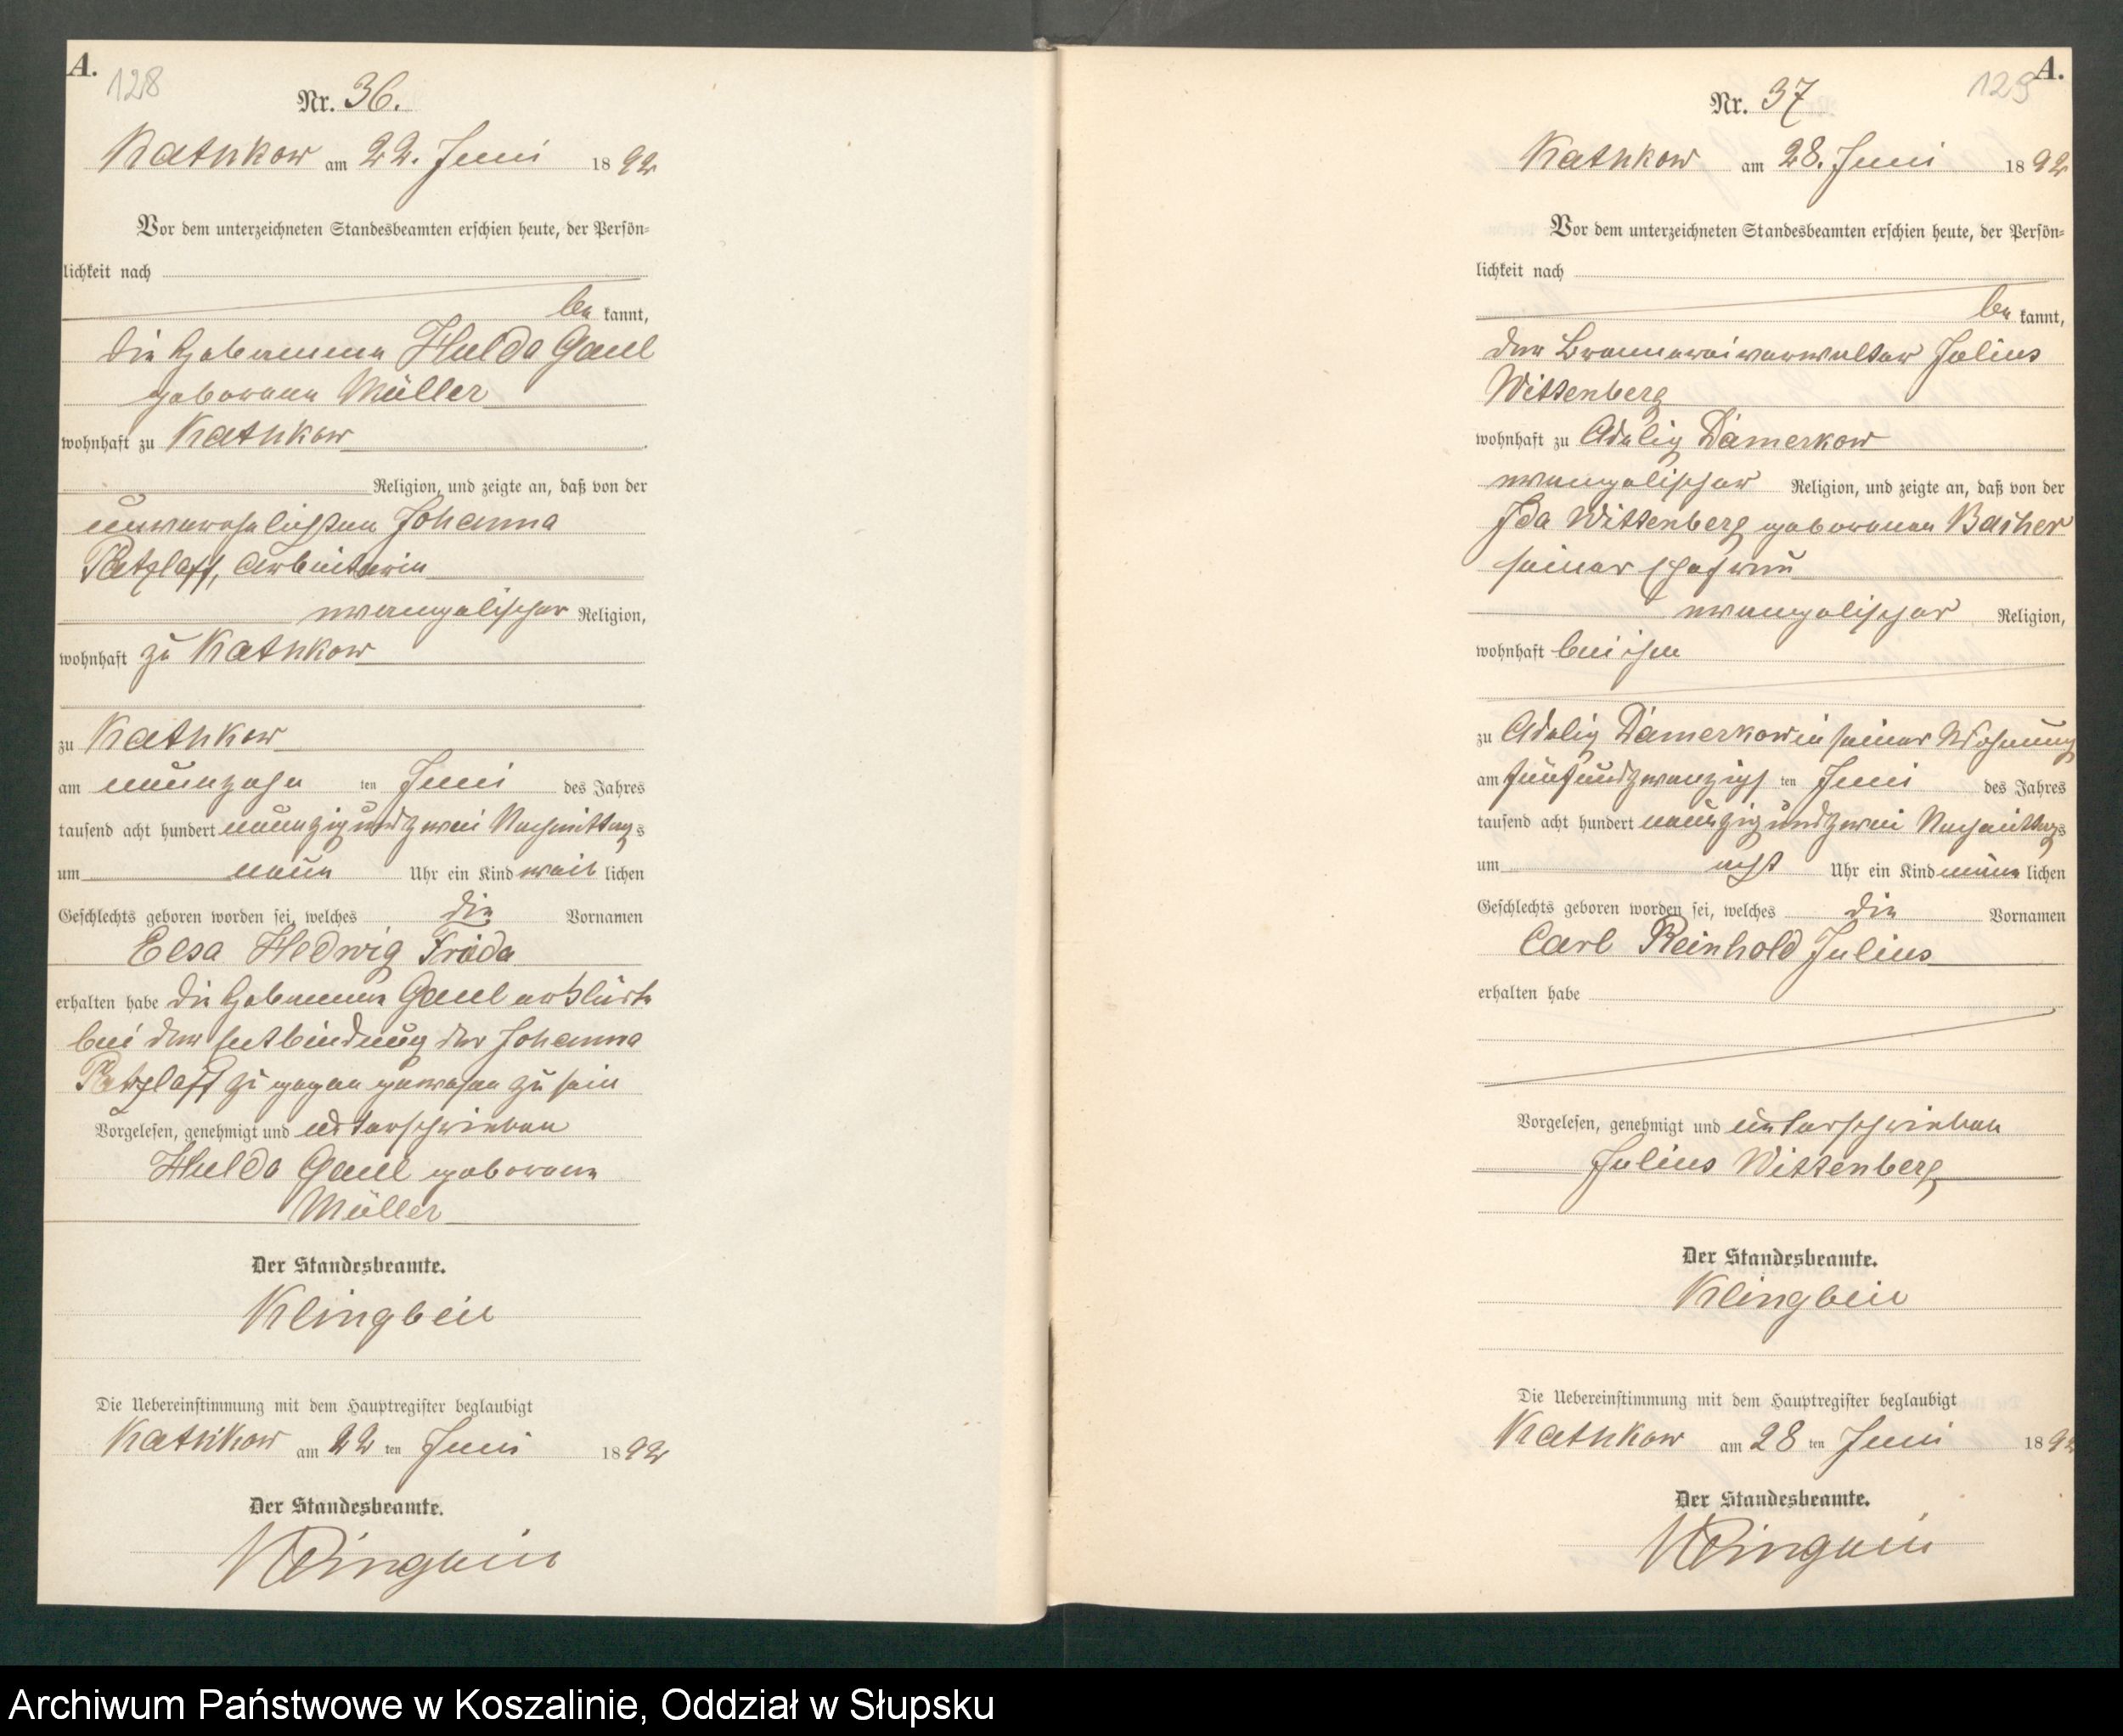 A.
128
Nr. 36.
Kathkow am 22. Juni 1892
Vor dem unterzeichneten Standesbeamten erschien heute, der Persön-
lichkeit nach
be kannt,
die Hebamme Hulda Gaul
geborene Müller
wohnhaft zu Kathkow
Religion, und zeigte an, daß von der
unverehelichten Johanna
Ratzlaff, Arbeiterin
evangelischer Religion,
wohnhaft zu Kathkow
zu Kathkow
am neunzehn ten Juni des Jahres
tausend acht hundert neunzig und zwei Nachmittags
um neun Uhr ein Kind weib lichen
Geschlechts geboren worden sei, welches die Vornamen
Elsa Hedwig Frida
erhalten habe die Hebamme Gaul erklärte
bei der Entbindung der Johanna
Ratzlaff zugegen gewesen zu sein
Vorgelesen, genehmigt und unterschrieben
Hulda Gaul geborene
Müller
Der Standesbeamte.
Klingbeil
Die Uebereinstimmung mit dem Hauptregister beglaubigt
Kathkow am 22 ten Juni 1892
Der Standesbeamte.
Klingbeil
A.
129
Nr. 37
Kathkow am 28. Juni 1892
Vor dem unterzeichneten Standesbeamten erschien heute, der Persön-
lichkeit nach
be kannt,
der Brennereiverwalter Julius
Wittenberg
wohnhaft zu Adelig Dämerkow
evangelischer Religion, und zeigte an, daß von der
Ida Wittenberg geborenen Becher
seiner Ehefrau
evangelischer Religion,
wohnhaft bei ihm
zu Adelig Dämerkow in seiner Wohnung
am fünfundzwanzigs ten Juni des Jahres
tausend acht hundert neunzig und zwei Nachmittags
um acht Uhr ein Kind männ lichen
Geschlechts geboren worden sei, welches die Vornamen
Carl Reinhold Julius
erhalten habe
Vorgelesen, genehmigt und unterschrieben
Julius Wittenberg
Der Standesbeamte.
Klingbeil
Die Uebereinstimmung mit dem Hauptregister beglaubigt
Kathkow am 28 ten Juni 1892
Der Standesbeamte.
Klingbeil
Archiwum Państwowe w Koszalinie, Oddział w Słupsku